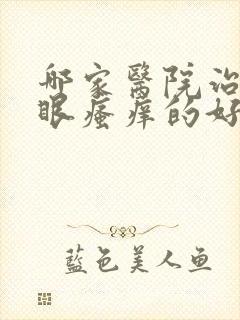 哪家醫院治
眼瘙痒的好
藍色美人鱼